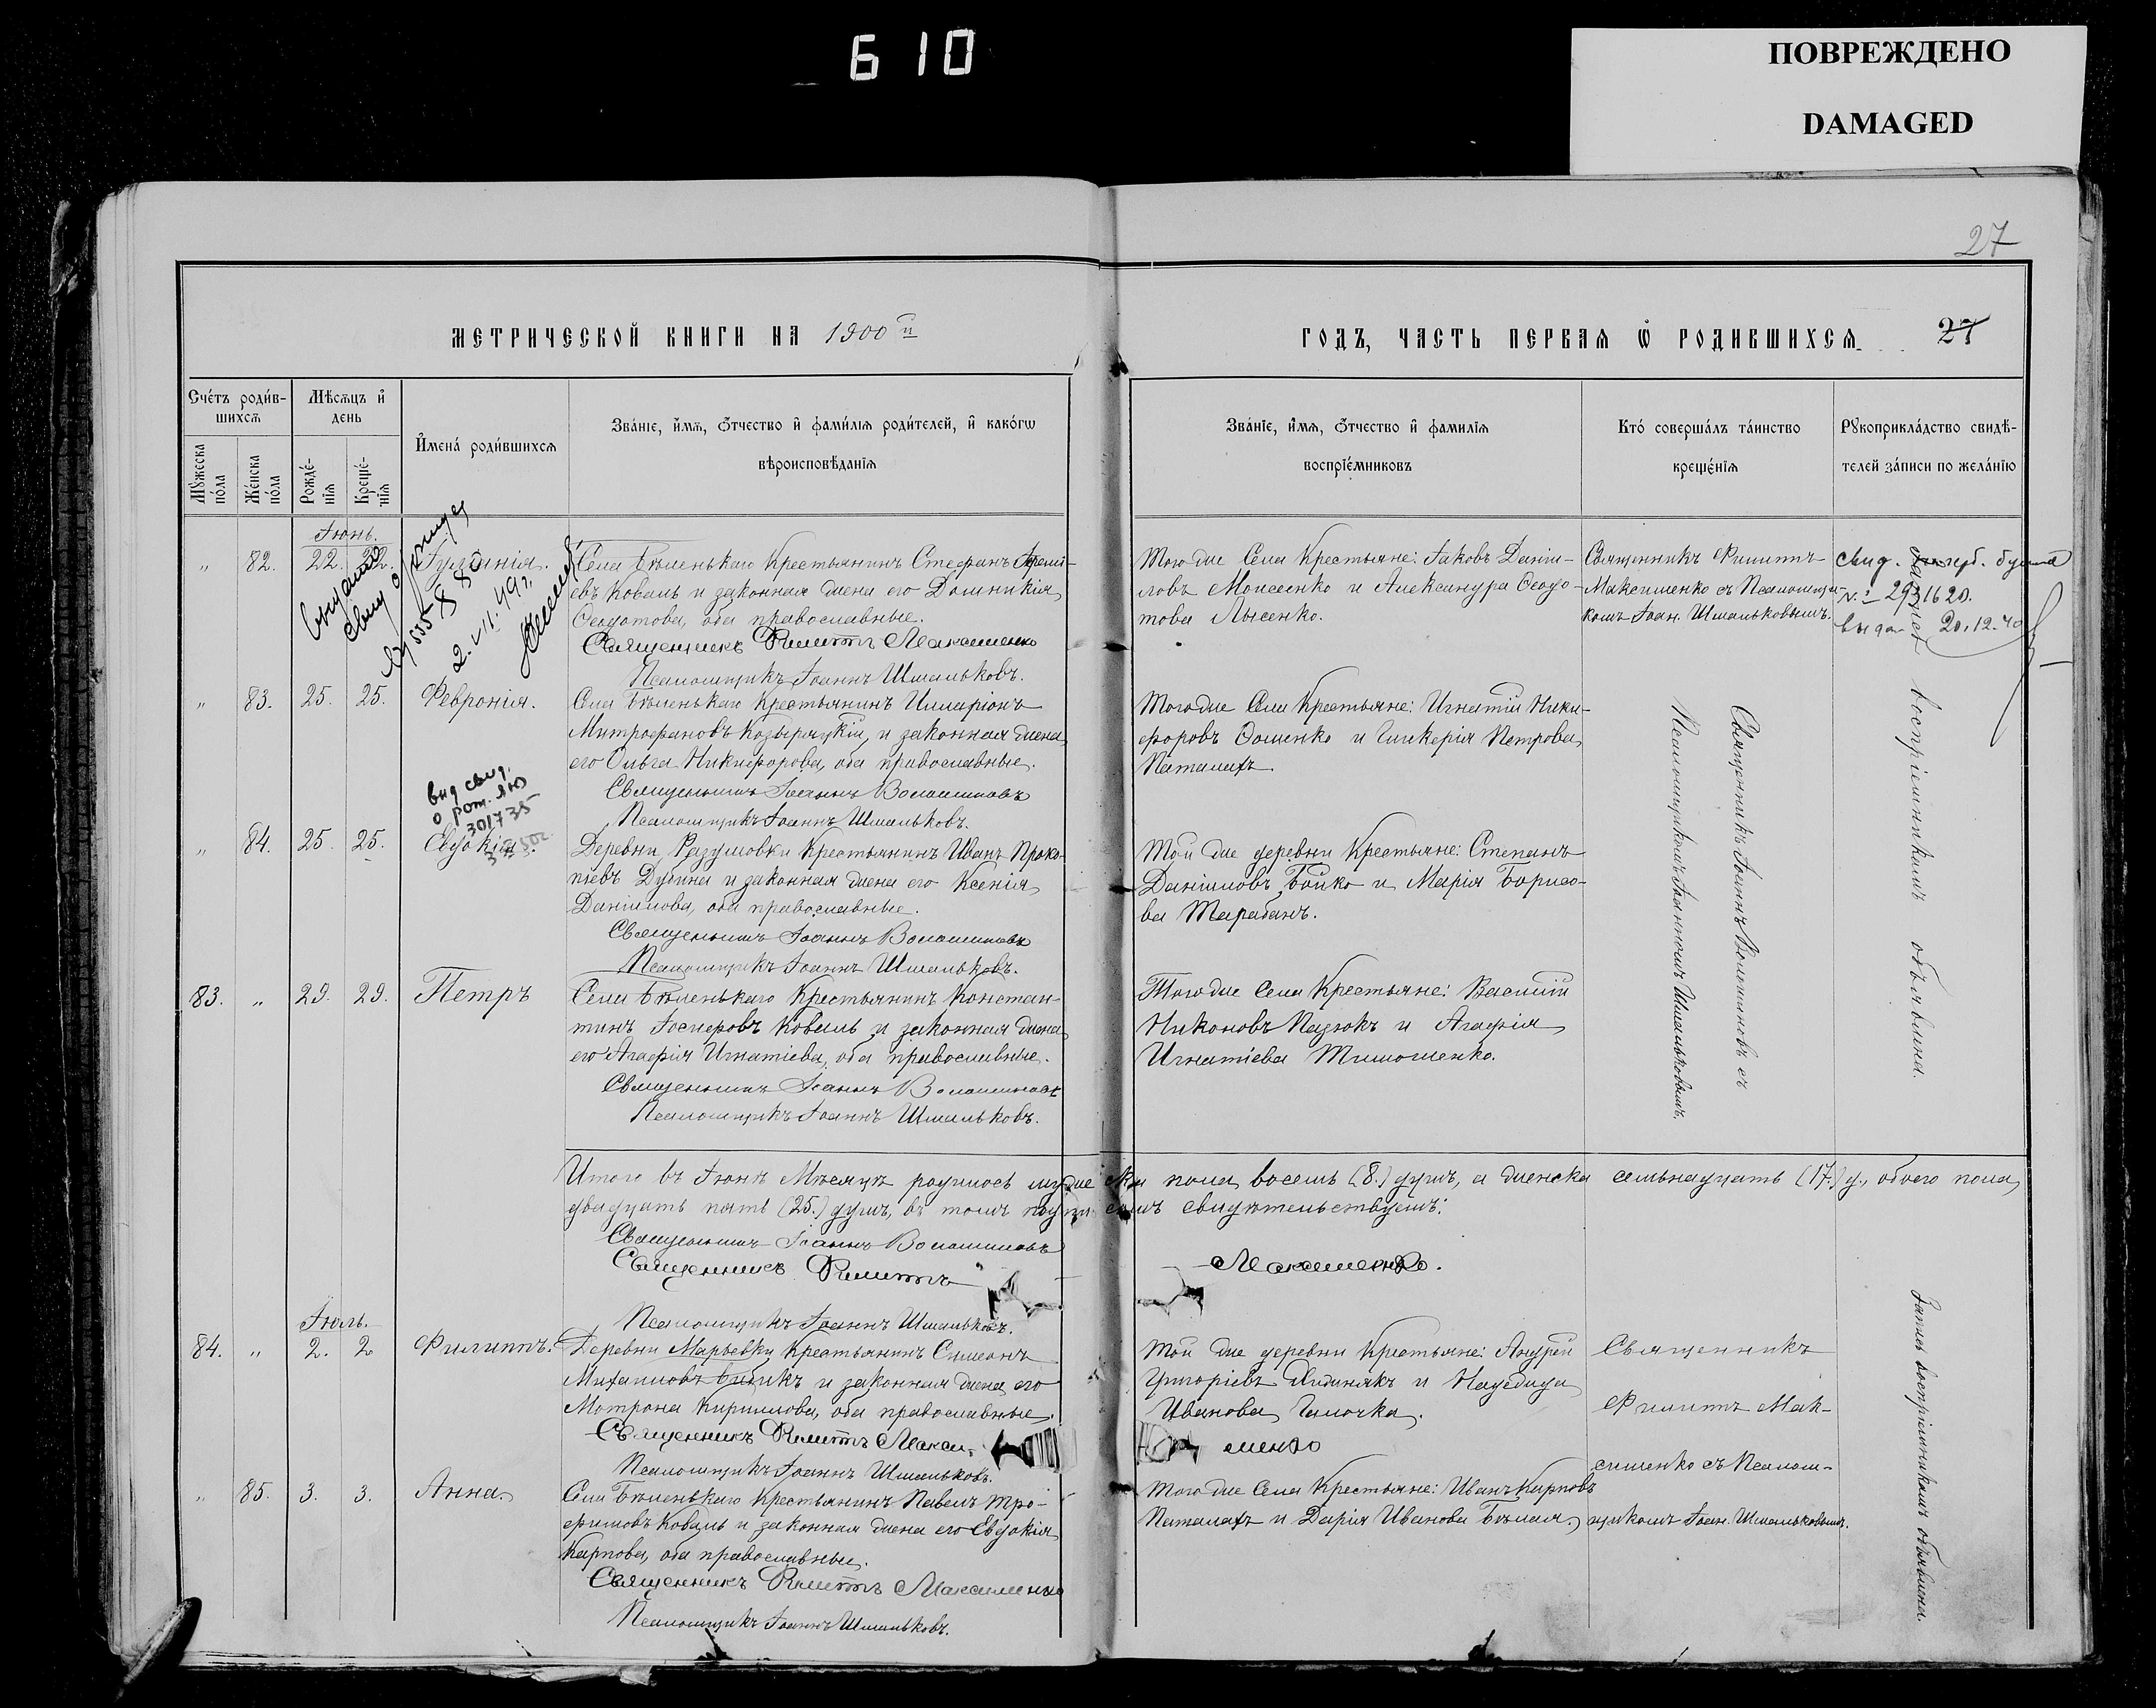 610
ПОВРЕЖДЕНО
DAMAGED
27
МЕТРИЧЕСКОЙ КНИГИ НА 1900й
ГОДЪ, ЧАСТЬ ПЕРВАЯ Ѿ РОДИВШИХСЯ.
27
Сче́тъ роди́в-
шихсѧ
Мѣ́сѧцъ и҆
день
И҆мена̀ роди́вшихсѧ
Зва́нїе, и҆́мѧ, ѻ҆́тчество и҆ фами́лїѧ роди́телей, и҆ како́гѡ
вѣроисповѣ́данїѧ
Зва́нїе, и҆́мѧ, ѻ҆́тчество и҆ фами́лїѧ
воспрїе́мниковъ
Кто̀ соверша́лъ та́инство
креще́нїѧ
Рꙋкоприкла́дство свидѣ́-
телей за́писи по жела́нїю
Мꙋ́жеска
по́ла
Же́нска
по́ла
Рожде́-
нїѧ
Креще́-
нїѧ
Іюнь.
„ 82. 22. 22. Іуліанія.
Села Бѣленькаго Крестьянинъ Стефанъ
евъ Коваль и законная жена его Домникія
Ѳеодотова, оба православные.
Священникъ Филиппъ Максименко
Псаломщикъ Іоаннъ Шмальковъ.
Того же Села Крестьяне: Іаковъ Даніи-
ловъ Моисеенко и Александра Ѳеодо-
това Лысенко.
Священникъ Филиппъ
Максименко съ Псаломщи-
комъ Іоан. Шмальковымъ.
свид.
№ 2931620.
выдан 20.12.40
выдано
свид о
2.VII.49г.
„ 83. 25. 25. Февронія.
Села Бѣленькаго Крестьянинъ Илларіонъ
Митрофановъ Козыряцкій, и законная жена
его Ольга Никифорова, оба православные.
Священникъ Іоаннъ Волошиновъ
Псаломщикъ Іоаннъ Шмальковъ.
Того же Села Крестьяне: Игнатій Ники-
форовъ Ѳоменко и Гликерія Петрова
Паталахъ.
выд свид.
о рож. ЯЮ
301735
„ 84. 25. 25. Евдокія.
Деревни Разумовки Крестьянинъ Иванъ Проко-
піевъ Дубина и законная жена его Ксенія
Даніилова, оба православные.
Священникъ Іоаннъ Волошиновъ
Псаломщикъ Іоаннъ Шмальковъ.
Той же деревни Крестьяне: Степанъ
Даніиловъ Бойко и Марія Борисо-
ва Тарабанъ.
83. „ 29. 29. Петръ
Села Бѣленькаго Крестьянинъ Констан-
тинъ Іосифовъ Коваль и законная жена
его Агафія Игнатіева, оба православные.
Священникъ Іоаннъ Волошиновъ
Псаломщикъ Іоаннъ Шмальковъ.
Того же Села Крестьяне: Василій
Никоновъ Падюкъ и Агафія
Игнатіева Тимошенко.
Священникъ Іоаннъ Волошиновъ съ
Псаломщикомъ Іоанномъ Шмальковымъ.
Запись воспріемникамъ объявлена.
Итого въ Іюнѣ Мѣсяцѣ родилось мужеска пола восемь (8.) душъ, а женска семьнадцать (17.) д., обоего пола
двадцать пять (25.) душъ, въ томъ подписомъ свидѣтельствуемъ:
Священникъ Іоаннъ Волошиновъ
Священникъ Филиппъ Максименко.
Псаломщикъ Іоаннъ Шмальковъ.
Іюль.
84. „ 2. 2 Филиппъ.
Деревни Марьевки Крестьянинъ Симеонъ
Михаиловъ Бибикъ и законная жена его
Мотрона Кириллова, оба православные.
Священникъ Филиппъ Макси-
менко
Псаломщикъ Іоаннъ Шмальковъ.
Той же деревни Крестьяне: Андрей
Григоріевъ и Надежда
Иванова Галочка.
Священникъ
Филиппъ Мак-
сименко съ Псалом-
щикомъ Іоан. Шмальковымъ.
„ 85. 3. 3. Анна.
Села Бѣленькаго Крестьянинъ Павелъ Тро-
фимовъ Коваль и законная жена его Евдокія
Карпова, оба православные.
Священникъ Филиппъ Максименко
Псаломщикъ Іоаннъ Шмальковъ.
Того же Села Крестьяне: Иванъ Карповъ
Паталахъ и Дарія Иванова Бѣлая
Запись воспріемникамъ объявлена.